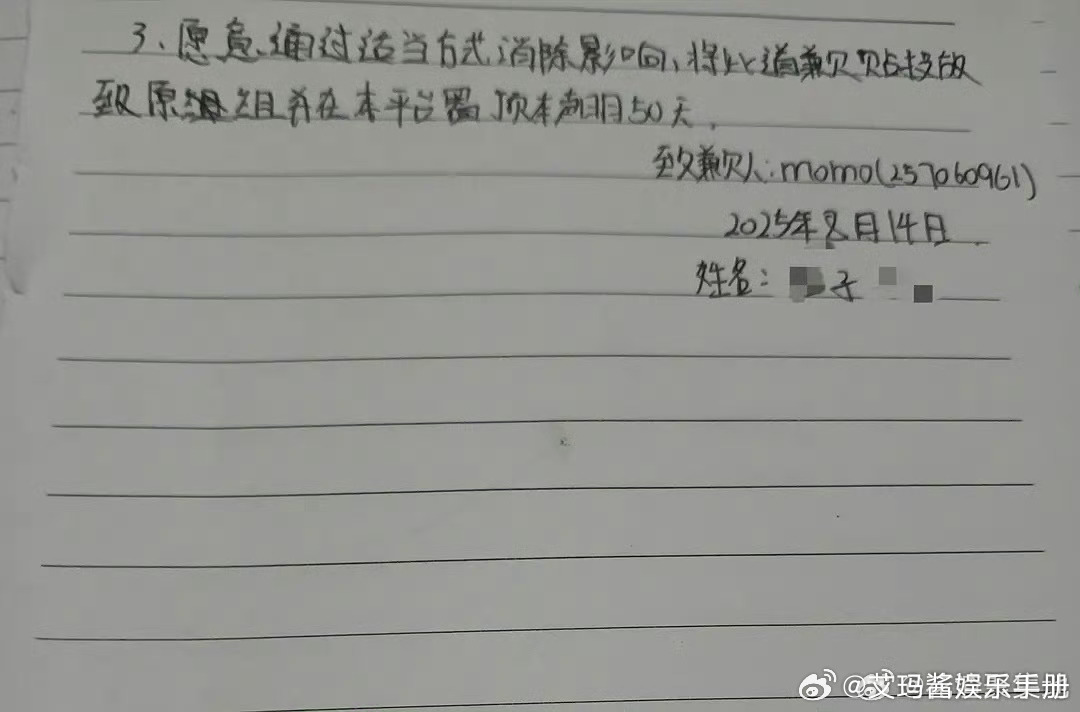 3、愿意通过适当方式消除影响，将此道歉贴投放
至原组组并在本平台置顶本声明50天.
致歉人:momo(257060961)
2025年8月14日.
姓名: 子
@艾玛酱娱乐集册